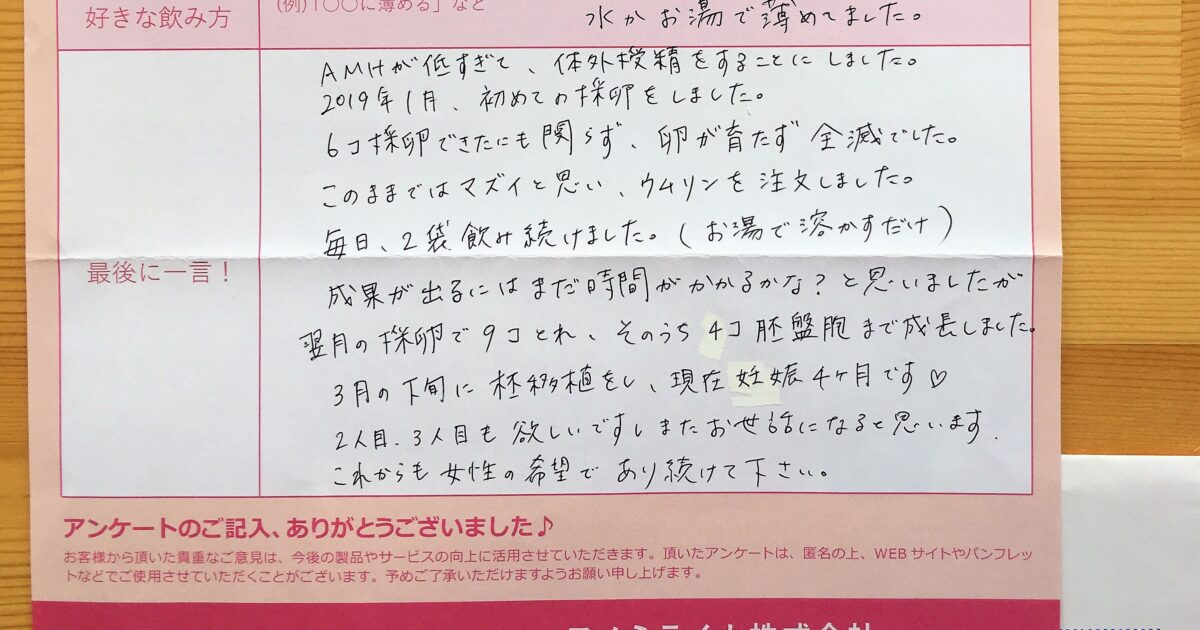 (例)「〇〇に薄める」など
好きな飲み方
水かお湯で薄めてました。
AMHが低すぎて、体外授精をすることにしました。
2019年1月、初めての採卵をしました。
6コ採卵できたにも関らず、卵が育たず全滅でした。
このままではマズイと思い、ウムリンを注文しました。
毎日、2袋飲み続けました。(お湯で溶かすだけ)
最後に一言!
成果が出るにはまだ時間がかかるかな?と思いましたが
翌月の採卵で9コとれ、そのうち4コ胚盤胞まで成長しました。
3月の下旬に胚移植をし、現在妊娠4ヶ月です♡
2人目、3人目も欲しいですしまたお世話になると思います.
これからも女性の希望であり続けて下さい。
アンケートのご記入、ありがとうございました♪
お客様から頂いた貴重なご意見は、今後の製品やサービスの向上に活用させていただきます。頂いたアンケートは、匿名の上、WEBサイトやパンフレッ
トなどでご使用させていただくことがございます。予めご了承いただけますようお願い申し上げます。